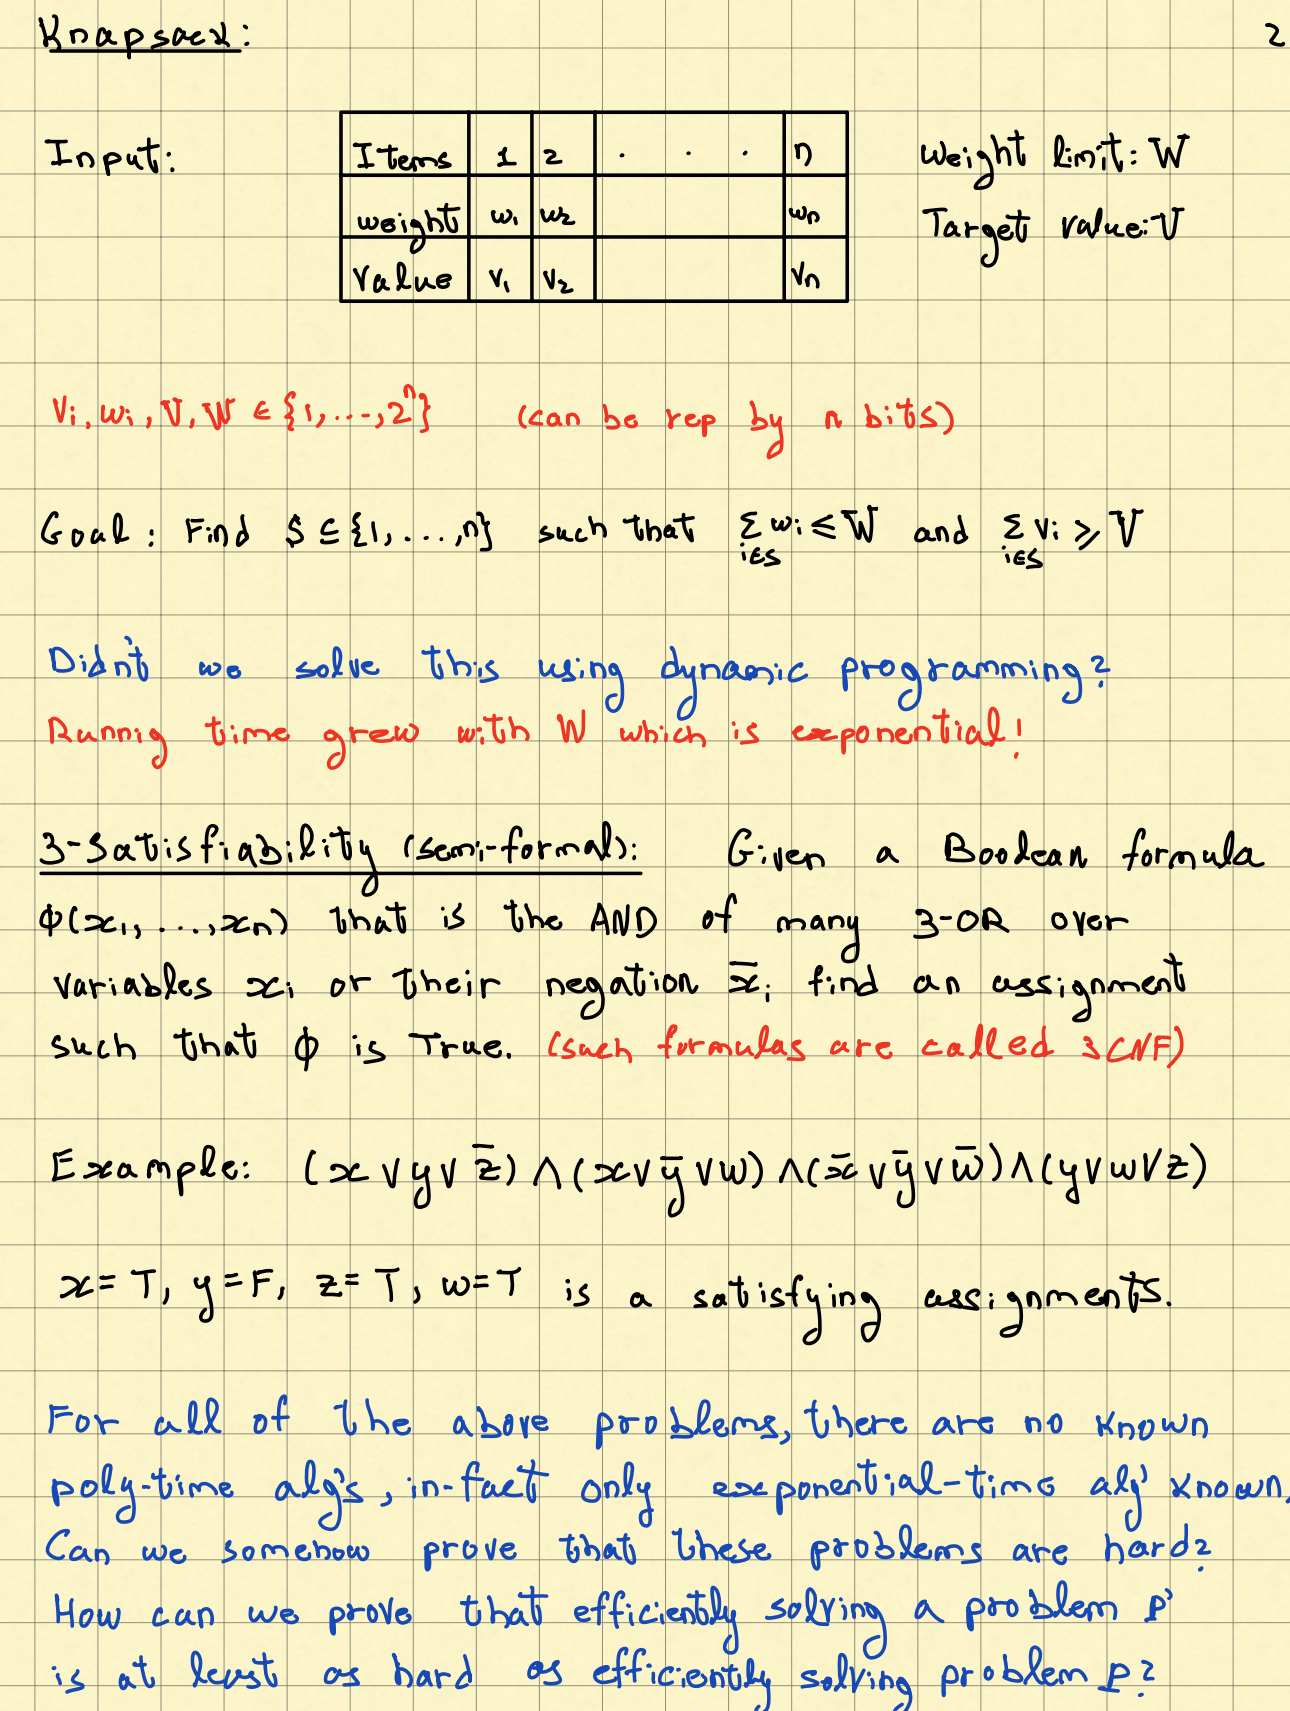 Knapsack:
2
Input:
Items 1 2 . . . n
weight w₁ w₂ wₙ
Value v₁ v₂ vₙ
Weight limit: W
Target value: V
Vi, wi, V, W ∈ {1,...,2ⁿ} (can be rep by n bits)
Goal: Find S ⊆ {1,...,n} such that ∑_{i∈S} wi ≤ W and ∑_{i∈S} vi ≥ V
Didn't we solve this using dynamic programming?
Runnig time grew with W which is exponential!
3-Satisfiability (semi-formal): Given a Boolean formula
ϕ(x₁,...,xₙ) that is the AND of many 3-OR over
variables xi or their negation x̄i find an assignment
such that ϕ is True. (such formulas are called 3CNF)
Example: (x ∨ y ∨ z̄) ∧ (x ∨ ȳ ∨ w) ∧ (x̄ ∨ ȳ ∨ w̄) ∧ (y ∨ w ∨ z)
x = T, y = F, z = T, w = T is a satisfying assignments.
For all of the above problems, there are no known
poly-time alg's, in-fact only exponential-time alg' known.
Can we somehow prove that these problems are hard?
How can we prove that efficiently solving a problem P'
is at least as hard as efficiently solving problem P?